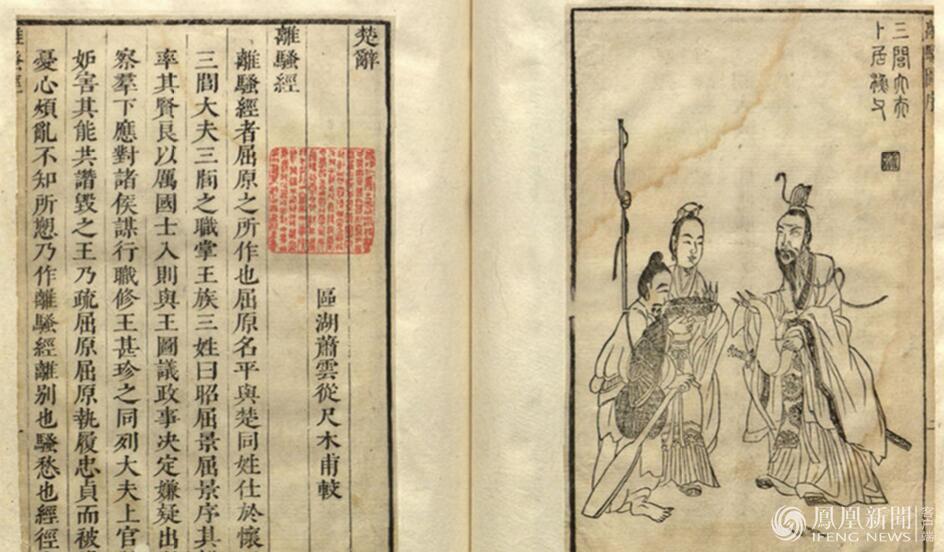 三閭大夫
卜居漁父
楚辭
區湖蕭雲從尺木甫較
離騷經
離騷經者屈原之所作也屈原名平與楚同姓仕於懷
三閭大夫三閭之職掌王族三姓曰昭屈景屈景序其
率其賢良以厲國士入則與王圖議政事决定嫌疑出
察羣下應對諸侯謀行職修王甚珍之同列大夫上官
妬害其能共譖毁之王乃疏屈原屈原執履忠貞而被
憂心煩亂不知所愬乃作離騷經離别也騷愁也經徑
離騷經
鳳凰新聞
客户端
IFENG NEWS